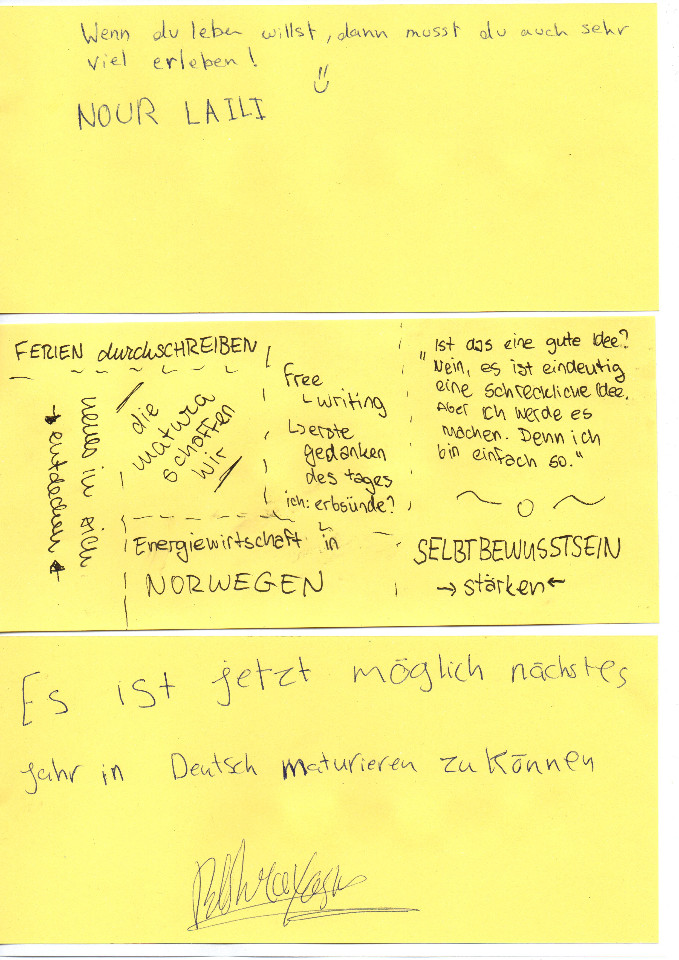 Wenn du leben willst, dann musst du auch sehr
viel erleben!
NOUR LAILI
FERIEN durchSCHREIBEN
neues in sich
→ entdecken ←
die
matura
schaffen
wir
free
↳ writing
↳ erste
gedanken
des tages
ich: erbsünde?
Energiewirtschaft in
NORWEGEN
"Ist das eine gute Idee?
Nein, es ist eindeutig
eine schreckliche Idee.
Aber ich werde es
machen. Denn ich
bin einfach so."
SELBTBEWUSSTSEIN
→ stärken ←
Es ist jetzt möglich nächstes
Jahr in Deutsch maturieren zu können